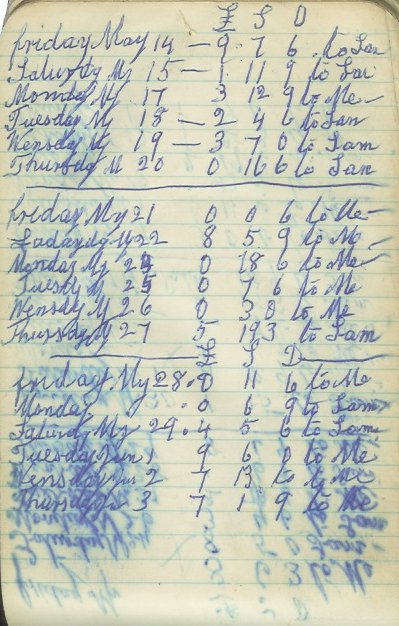 £ S D
Friday May 14 — 9 7 6 to Sam
Saturdy My 15 — 1 11 9 to Sam
Monday My 17 3 12 9 to Me —
Tuesday My 18 — 2 4 6 to Sam
Wensdy My 19 — 3 7 0 to Sam
Thursday M 20 0 16 6 to Sam
Friday My 21 0 0 6 to Me —
My 22 8 5 9 to Me —
Monday My 24 0 18 6 to Me —
Tuesdy My 25 0 7 6 to Me
Wensdy My 26 0 3 0 to Me
Thursday My 27 5 19 3 to Sam
£ S D
Friday My 28 . 0 11 6 to Me
Monday . 0 6 9 to Sam
Saturdy My 29 . 4 5 6 to Sam
Tuesday Jun 1 9 6 0 to Me
Wensday Jun 2 7 13 to Me
Thursday Jun 3 7 1 9 to Me